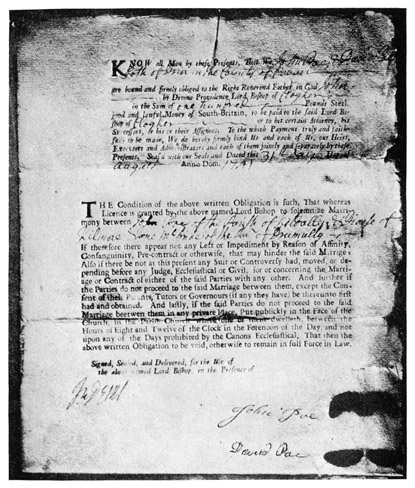 KNOW all Men by these Presents, That We John Poe & David Poe
both of in the County of
are bound and firmly obliged to the Right Reverend Father in God John
by Divine Providence Lord Bishop of Clogher
in the Sum of one hundred Pounds Sterl.
good and lawful Money of South-Britain, to be paid to the said Lord Bi-
shop of Clogher or to his certain Attorney, his
Successors, or his or their Assignees. To the which Payment truly and faith-
fully to be made, We do hereby firmly bind Us and each of Us, our Heirs,
Executors and Administrators and each of them jointly and separately by these
Presents, Seal'd with our Seals and Dated this 31st Day of
August Anno Dom. 1741
THE Condition of the above written Obligation is such, That whereas
Licence is granted by the above named Lord Bishop to solemnize Matri-
mony between John Poe of the Parish of &
of
If therefore there appear not any Lett or Impediment by Reason of Affinity,
Consanguinity, Pre-contract or otherwise, that may hinder the said Marriage
Also if there be not at this present any Suit or Controversy had, moved, or de-
pending before any Judge, Ecclesiastical or Civil, for or concerning the Marri-
age or Contract of either of the said Parties with any other. And further if
the Parties do not proceed to the said Marriage between them, except the Con-
sent of their Parents, Tutors or Governours (if any they have) be thereunto first
had and obtained. And lastly, if the said Parties do not proceed to the said
Marriage beetween them in any private Place, but publickly in the Face of the
Church, in the Parish Church where one of them dwelleth, between the
Hours of Eight and Twelve of the Clock in the Forenoon of the Day, and not
upon any of the Days prohibited by the Canons Ecclesiastical, That then the
above written Obligation to be void, otherwise to remain in full Force in Law.
Signed, Sealed, and Delivered, for the Use of
the above named Lord Bishop, in the Presence of
John Poe
David Poe